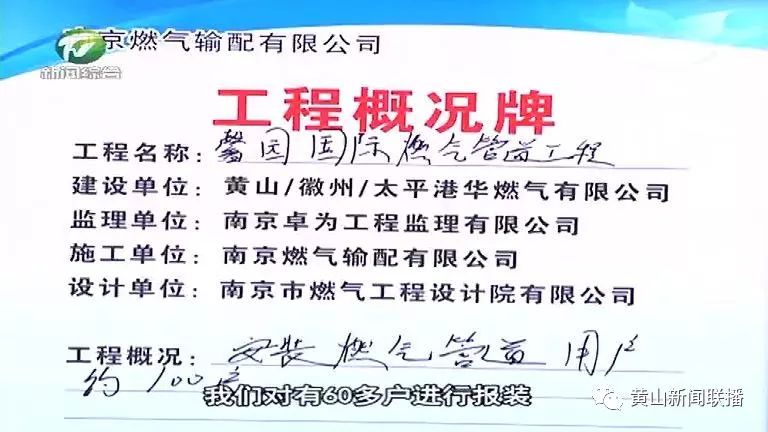 京燃气输配有限公司
新闻综合
工程概况牌
工程名称：馨园国际燃气管道工程
建设单位：黄山/徽州/太平港华燃气有限公司
监理单位：南京卓为工程监理有限公司
施工单位：南京燃气输配有限公司
设计单位：南京市燃气工程设计院有限公司
工程概况：安装燃气管道 用户
约100户
我们对有60多户进行报装
黄山新闻联播